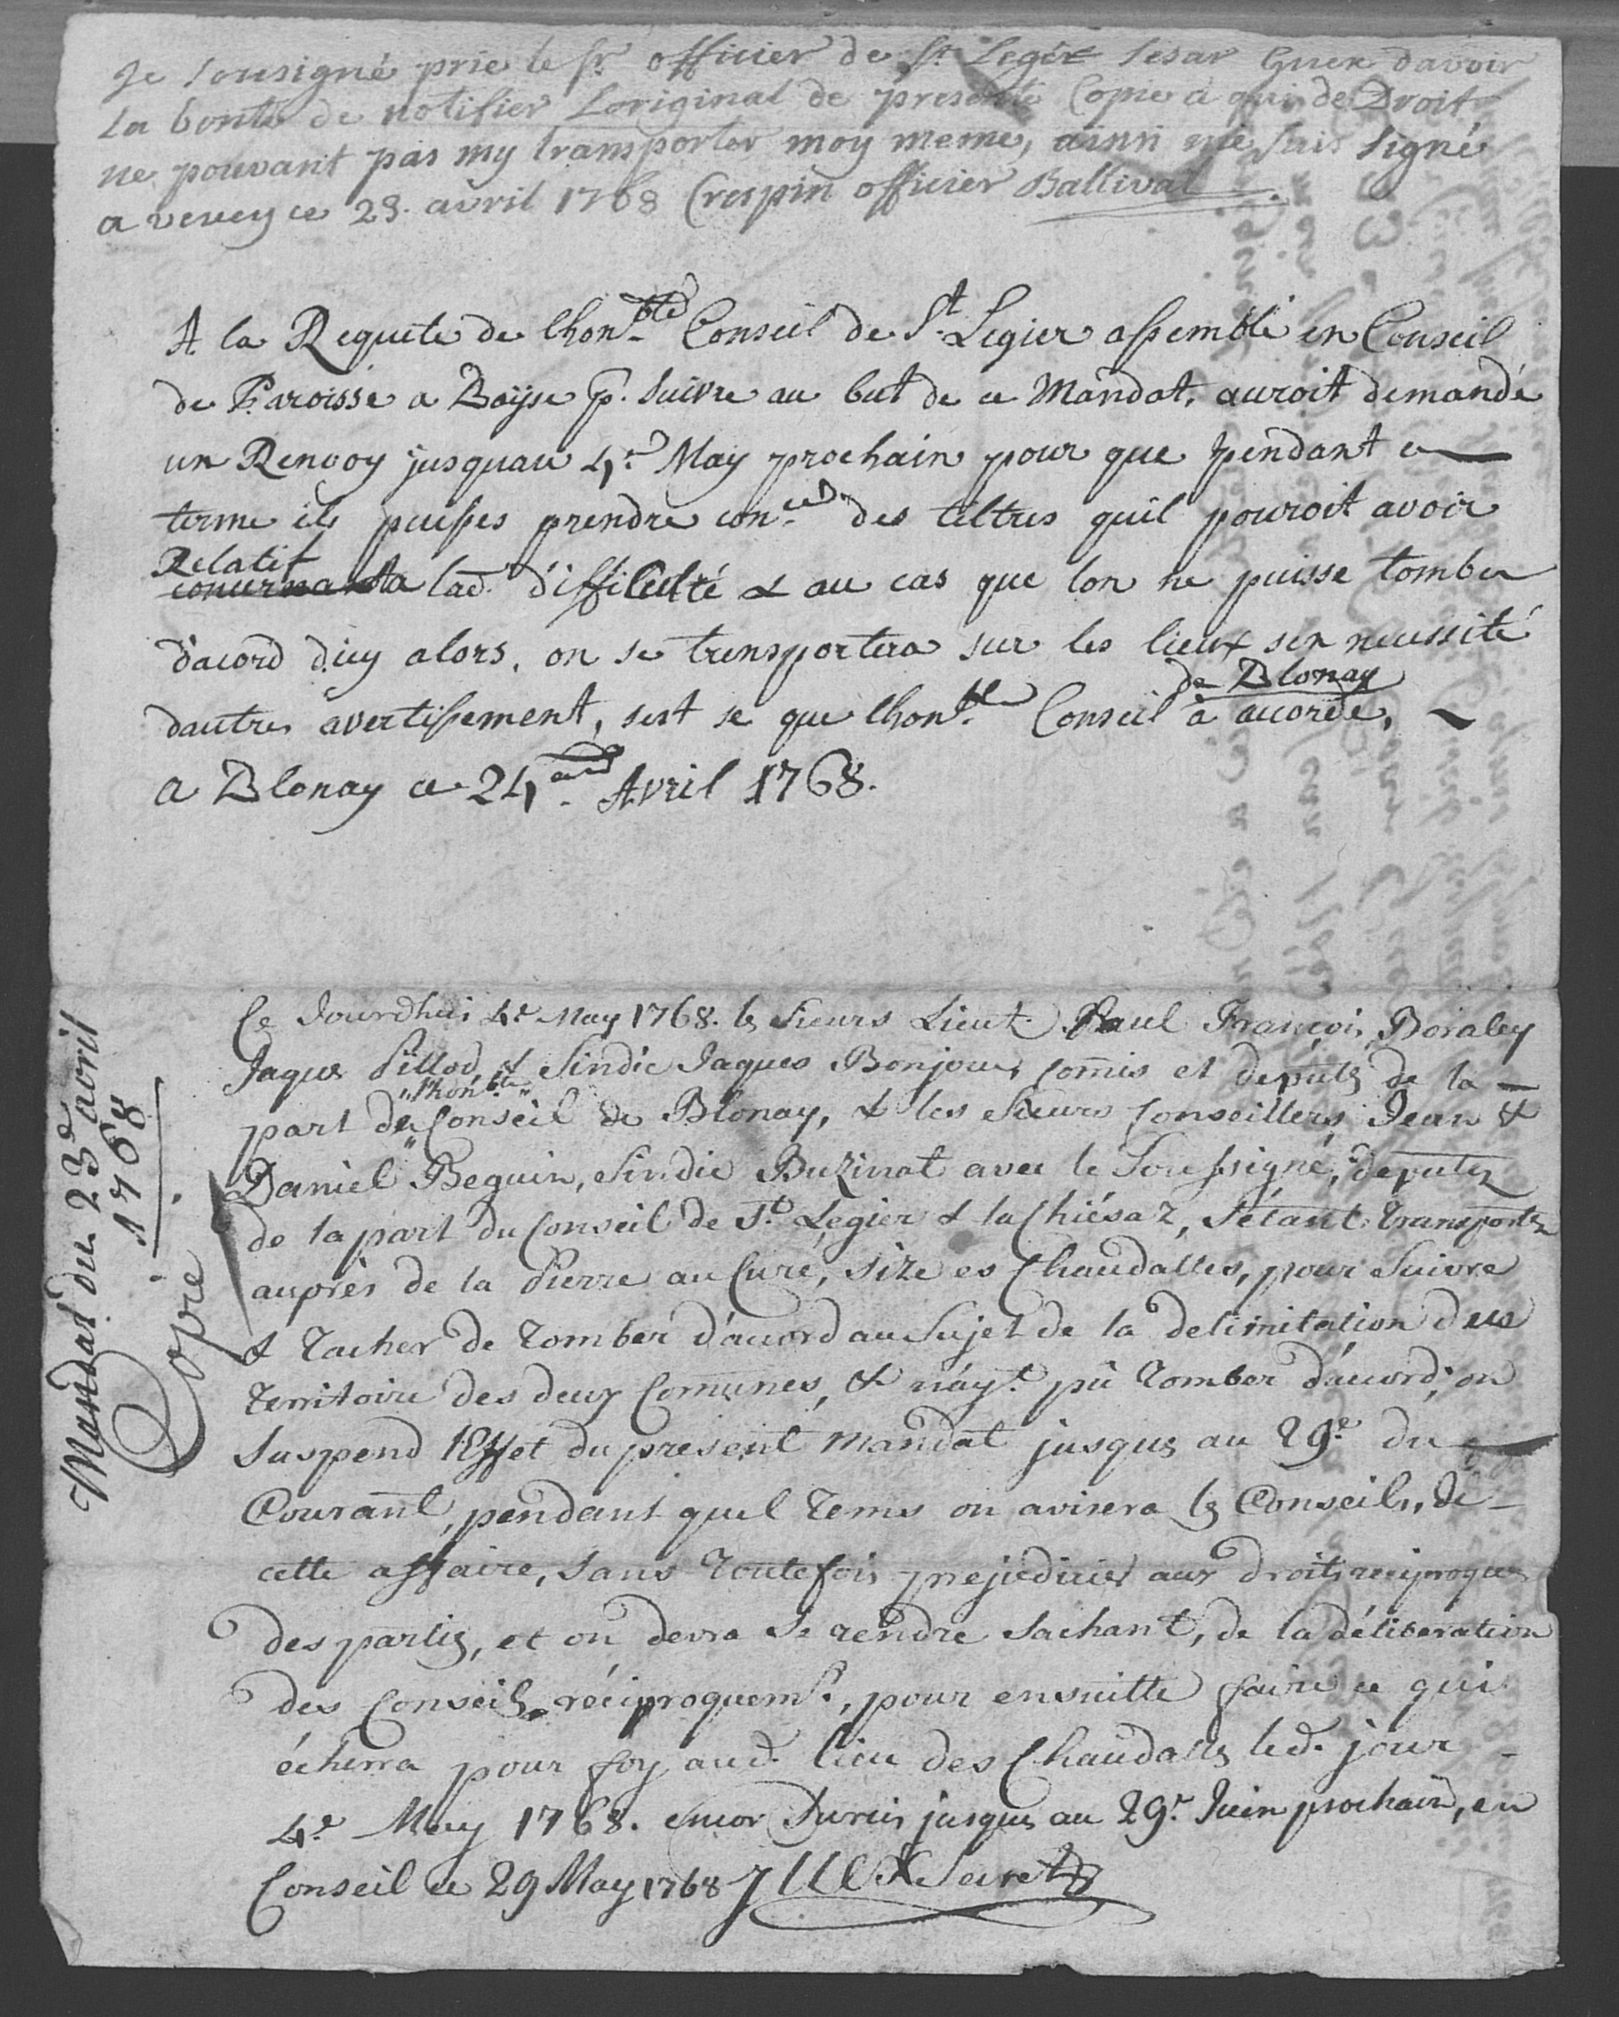 Je sousigné prie le Sr. officier de St. Legier Cesar Guex davoir
la bonté de notifier Loriginal de presente Copie a qui de Droit
ne pouvant pas my transporter moy meme, ainsi me suis signé
a vevey ce 23. avril 1768 Crespin officier Ballival
A la Requete de lhon.ble Conseil de St. Legier assemblé en Conseil
de Paroisse a Bayse p. suivre au but de ce Mandat, auroit demandé
un Renvoy jusquau 4e. May prochain pour que pendant ce
terme ils puisses prendre con.ce des tiltres quil pouroit avoir
Relatif
concernant a lad. difficulté & au cas que lon ne puisse tomber
d'acord dicy alors, on se transportera sur les lieux sen necessité
dautres avertissement, sest se que lhon.ble Conseil de Blonay à accordé,
a Blonay ce 24e. Avril 1768.
Ce Jourdhui 4e May 1768. les sieurs Lieut. Paul François Boraley
Jaques Pilliod, & Sindic Jaques Bonjour, comis et deputés de la
part de „lhon.ble„ Conseil de Blonay, & les sieurs Conseillers Jean &
Daniel Beguin, Sindic Buzinat avec le Soussigné, deputez
de la part du Conseil de St. Légier & la Chiésaz, s'étant transportez
auprès de la Pierre au Curé, size es Chaudalles, pour suivre
& tacher de tomber d'accord au sujet de la delimitation des
territoire des deux Comunes, & n'ay.t pû tomber d'accord, on
suspend l'Effet du présent mandat jusques au 29e. du
Courant, pendant quel tems on avisera les Conseils, de
cette affaire, sans toutefois prejudicier aux droits réciproques
des parties, et on devra se rendre sachant, de la déliberation
des Conseils réciproquem.t, pour ensuitte faire ce qui
écherra pour foy aud. lieu des Chaudalles led. jour
4e. May 1768. encor Surcis jusques au 29e. Juin prochain, en
Conseil ce 29 May 1768 Secret.
Mandat du 23e avril
1768
Copie